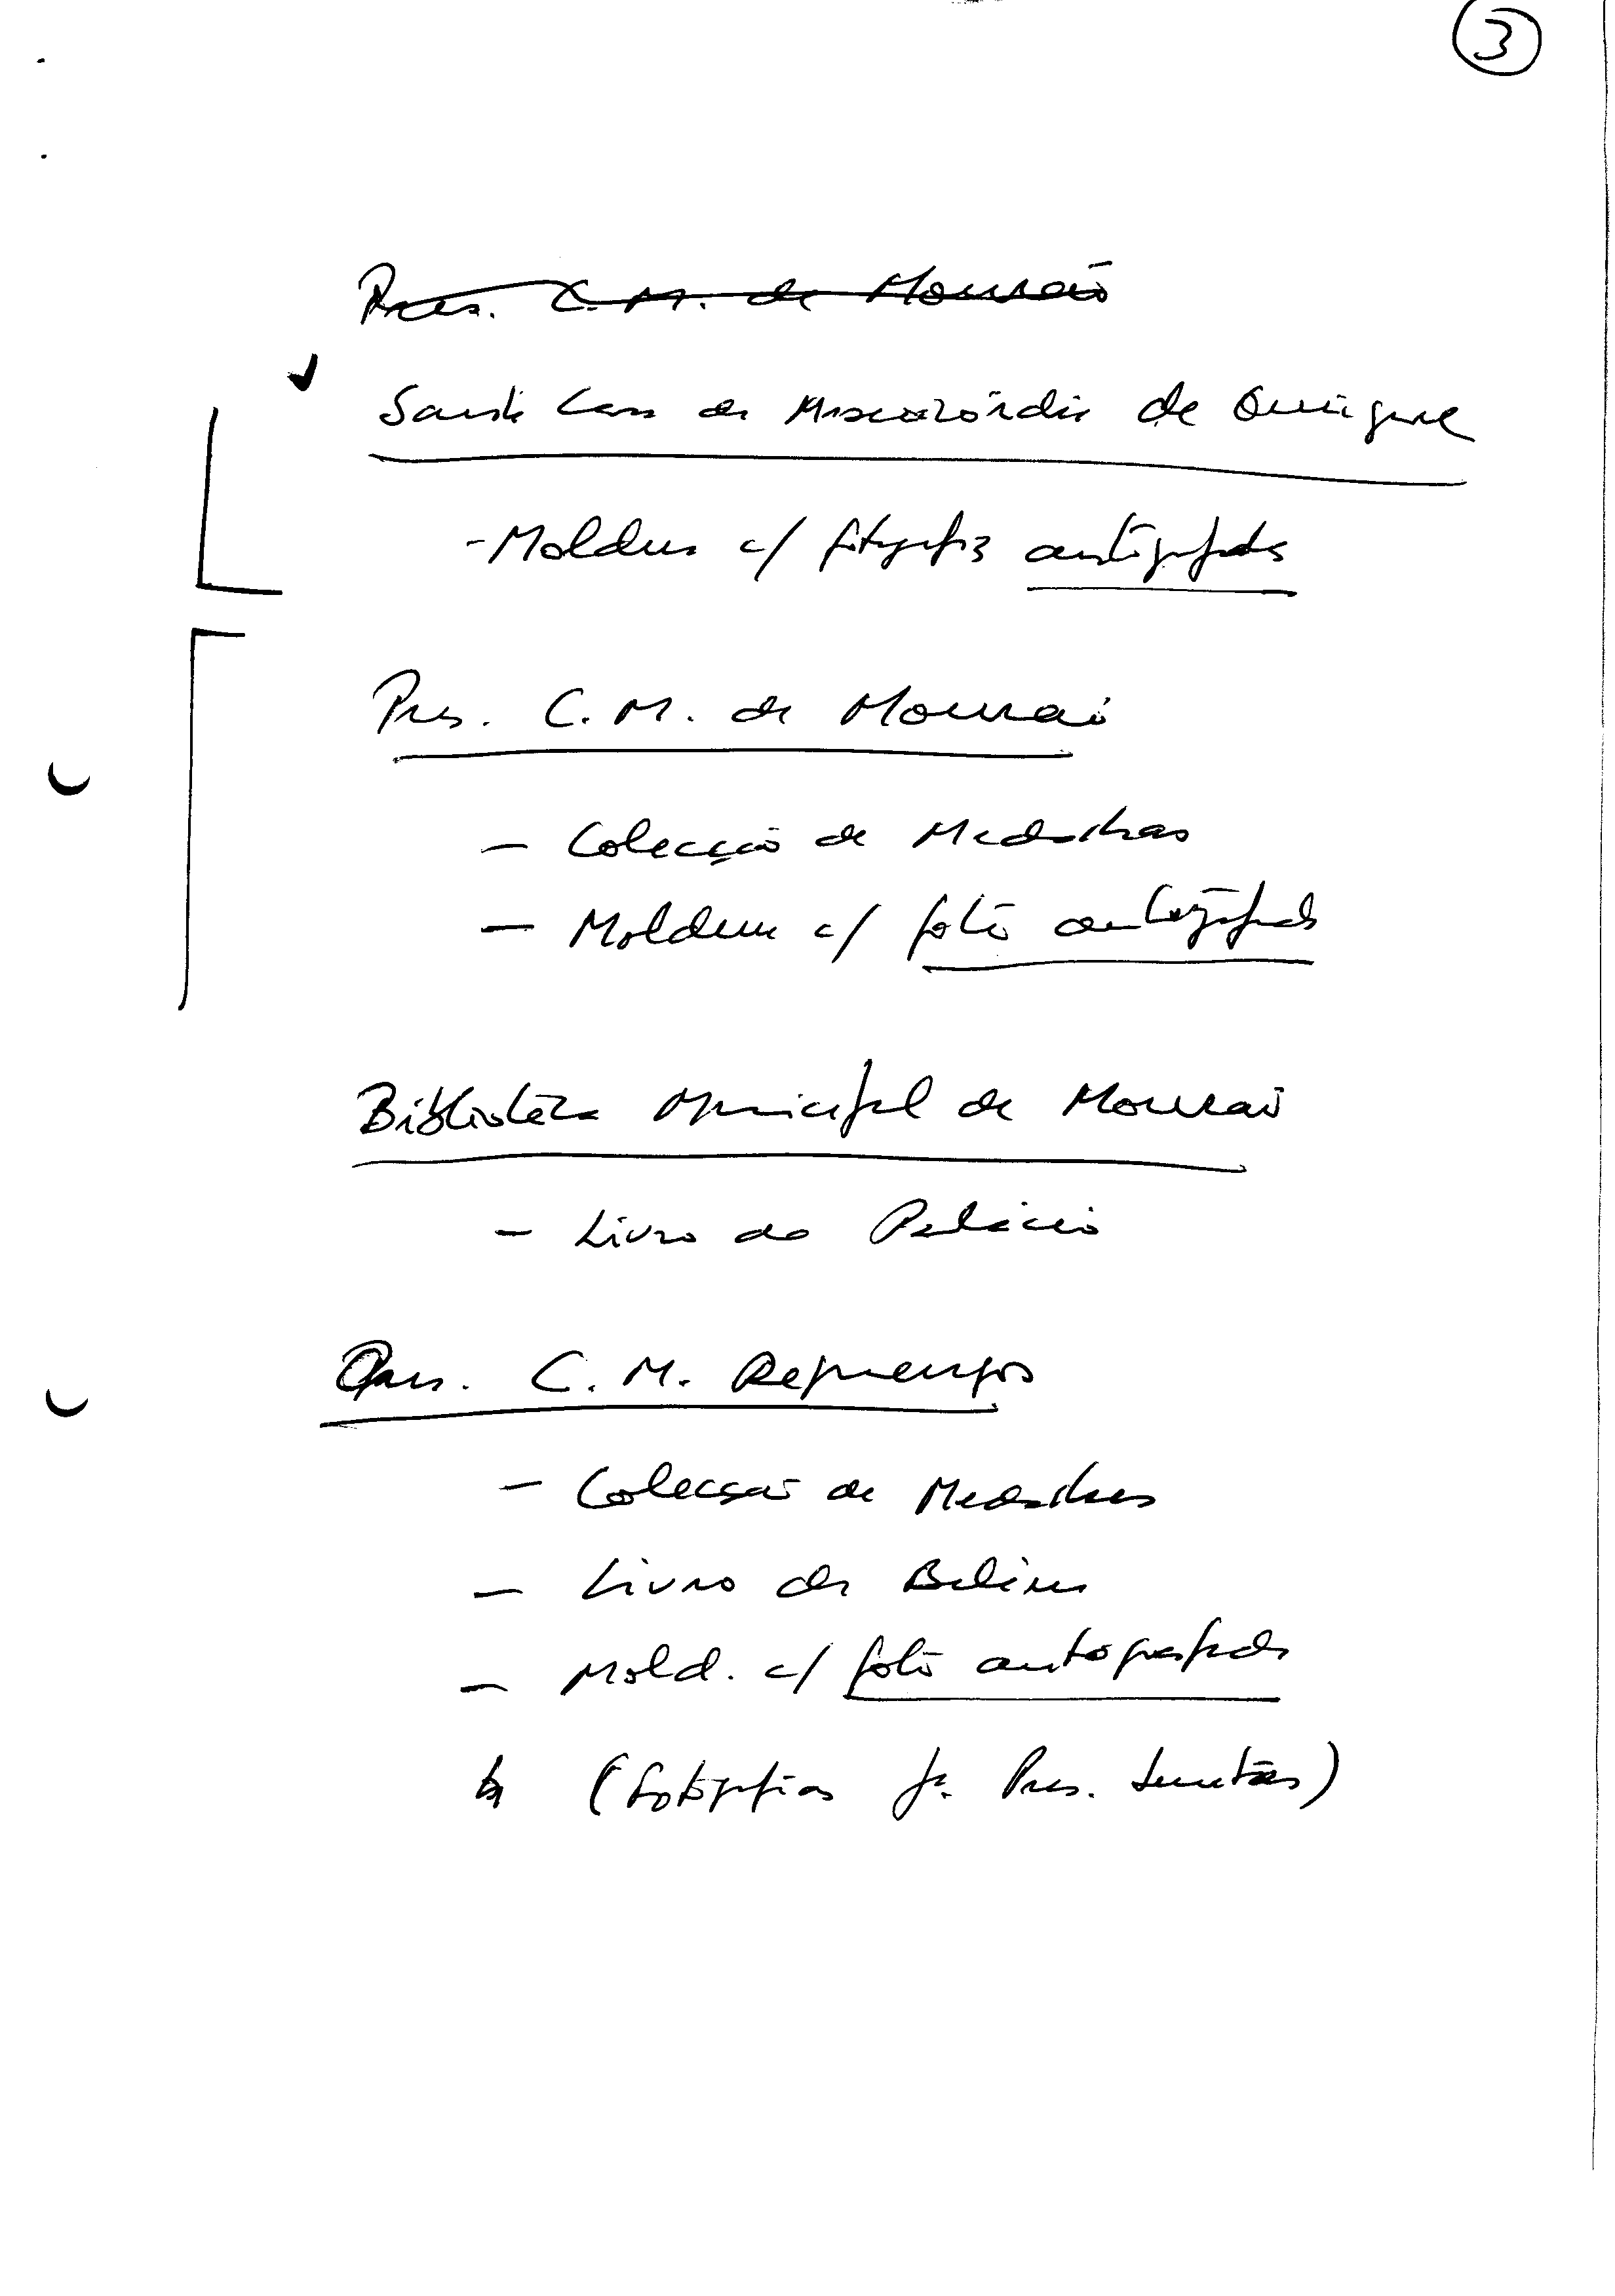 3
Pres. C. M. de Mourão
Santa Casa da Misericórdia de Ourique
- Moldura c/ fotografia autografada
Pres. C. M. de Mourão
- Colecção de Medalhas
- Moldura c/ foto autografada
Biblioteca Municipal de Mourão
- Livro do Palácio
Pres. C. M. Reguengos
- Colecção de Medalhas
- Livro de Belém
- Mold. c/ foto autografada
(Fotografias p. Pres. Juntas)